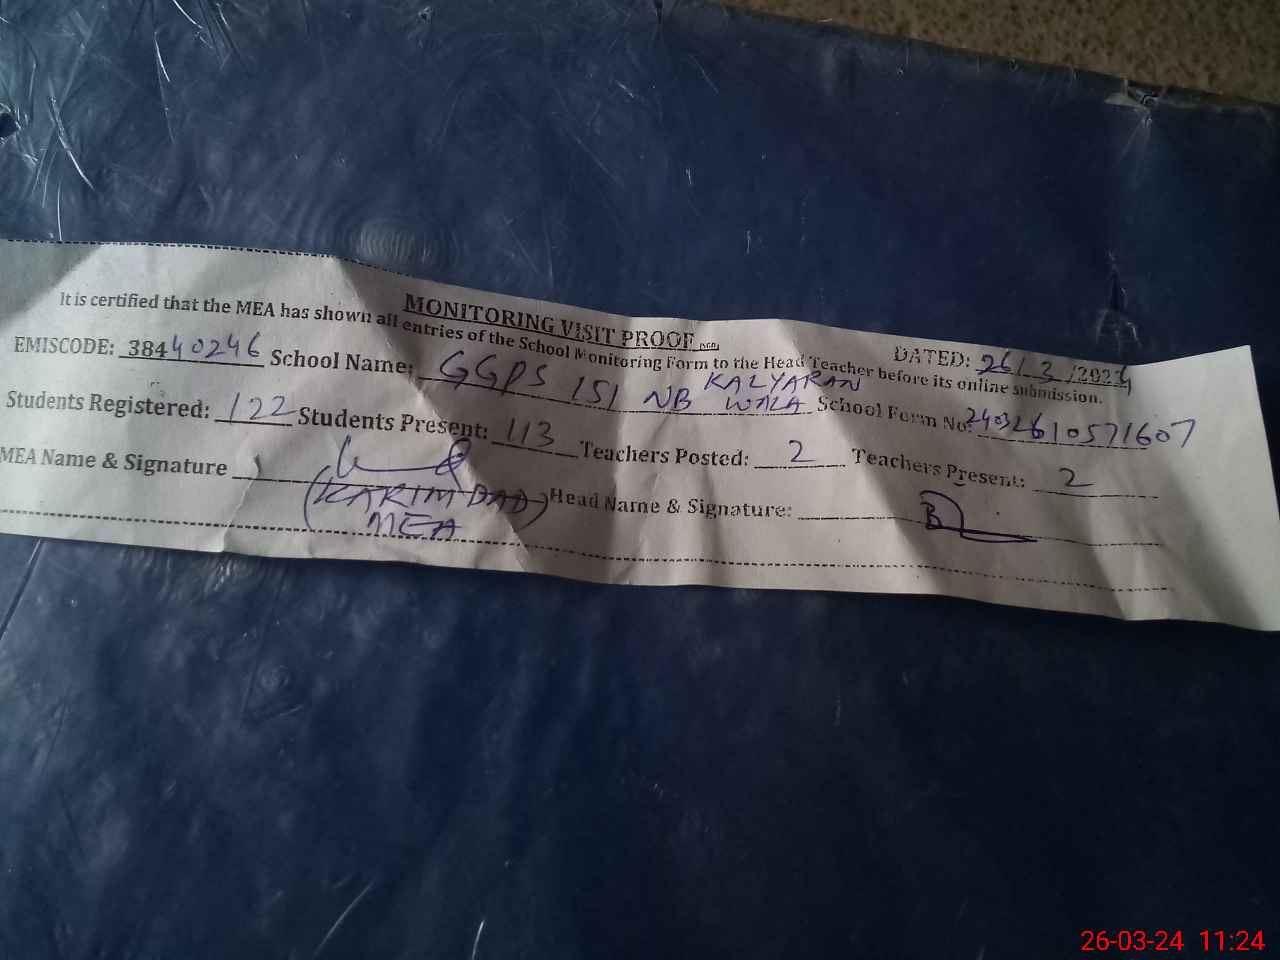 MONITORING VISIT PROOF
DATED: 26/3/2024
It is certified that the MEA has shown all entries of the School Monitoring Form to the Head Teacher before its online submission.
EMISCODE: 38440246 School Name: GGPS 151 NB KALYARAN WALA School Form No: 24032610571607
Students Registered: 122 Students Present: 113 Teachers Posted: 2 Teachers Present: 2
MEA Name & Signature (KARIM DAD) Head Name & Signature:
MEA
26-03-24 11:24